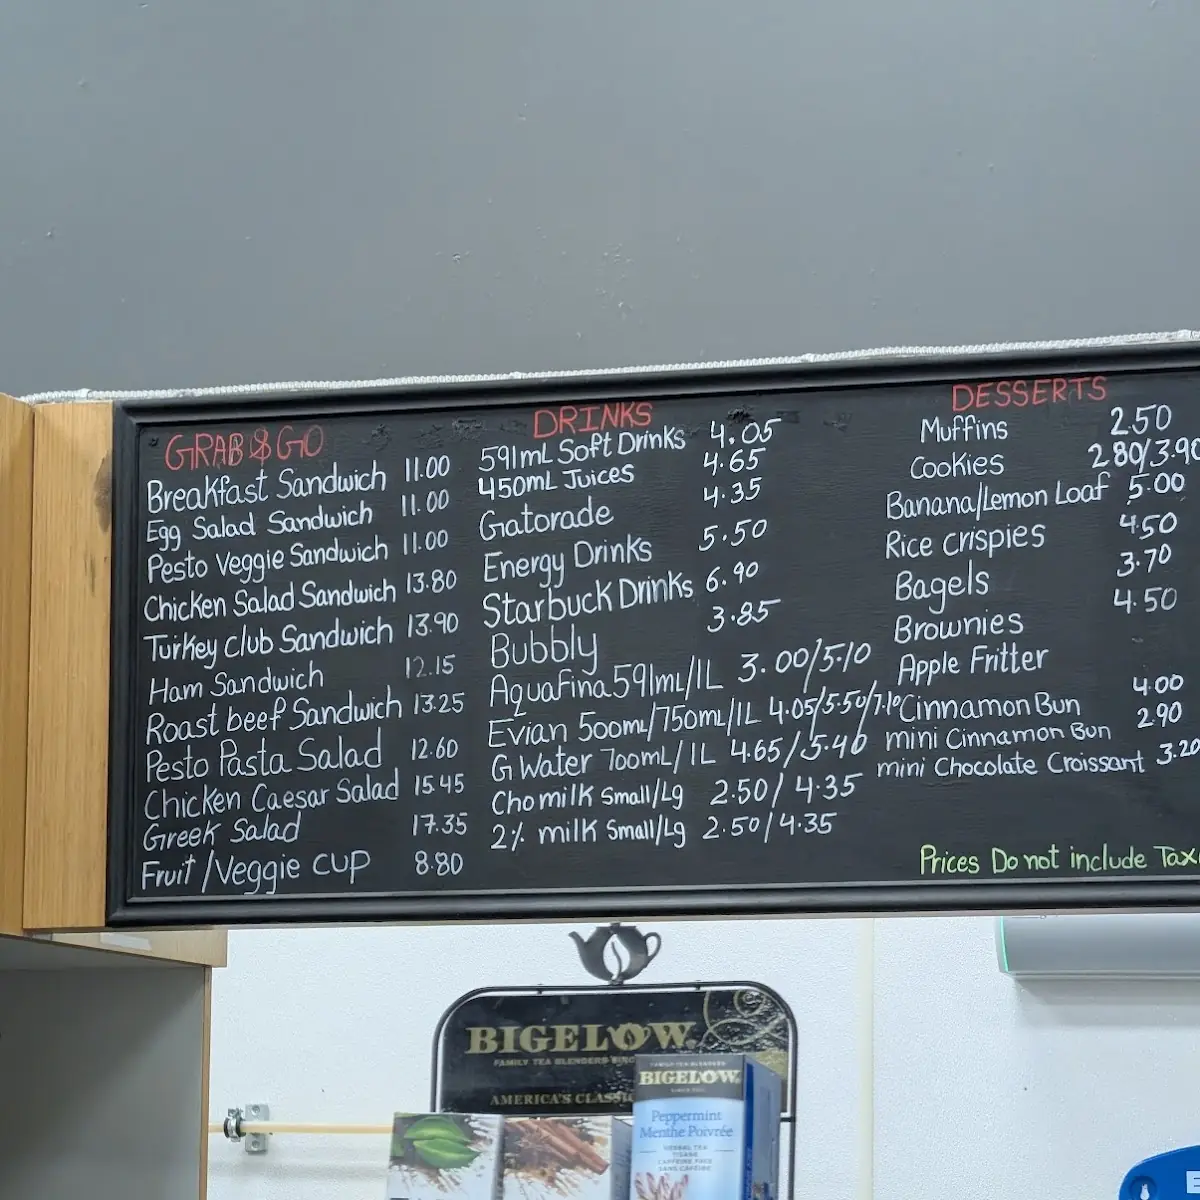 GRAB & GO
Breakfast Sandwich 11.00
Egg Salad Sandwich 11.00
Pesto Veggie Sandwich 11.00
Chicken Salad Sandwich 13.80
Turkey club Sandwich 13.90
Ham Sandwich 12.15
Roast beef Sandwich 13.25
Pesto Pasta Salad 12.60
Chicken Caesar Salad 15.45
Greek Salad 17.35
Fruit/Veggie cup 8.80
DRINKS
591mL Soft Drinks 4.05
450mL Juices 4.65
Gatorade 4.35
Energy Drinks 5.50
Starbuck Drinks 6.90
Bubbly 3.85
Aquafina 591mL/1L 3.00/5.10
Evian 500mL/750mL/1L 4.05/5.50/7.10
G Water 700mL/1L 4.65/5.40
Cho milk Small/Lg 2.50/4.35
2% milk Small/Lg 2.50/4.35
DESSERTS
Muffins 2.50
Cookies 2.80/3.90
Banana/Lemon Loaf 5.00
Rice crispies 4.50
Bagels 3.70
Brownies 4.50
Apple Fritter
Cinnamon Bun 4.00
mini Cinnamon Bun 2.90
mini Chocolate Croissant 3.20
Prices Do not include Tax
BIGELOW
FAMILY TEA BLENDERS
AMERICA'S CLASSIC
BIGELOW
Peppermint
Menthe Poivrée
HERBAL TEA
TISANE
CAFFEINE FREE
SANS CAFÉINE